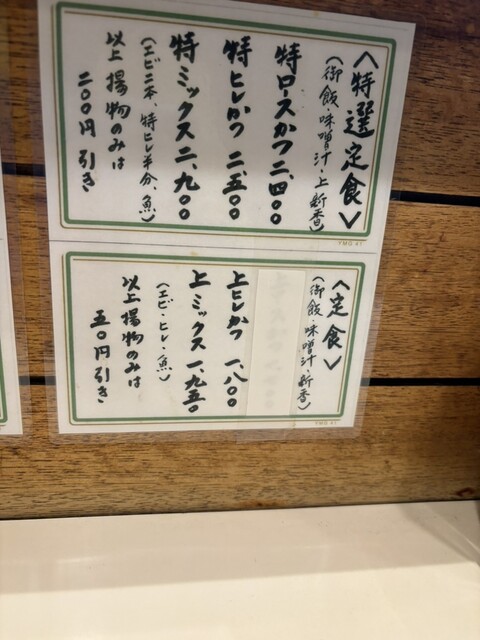 〈特選定食〉
(御飯・味噌汁・上新香)
特ロースかつ 二、四〇〇
特ヒレかつ 二、五〇〇
特ミックス 二、九〇〇
(エビ二本、特ヒレ半分、魚)
以上揚物のみは
二〇〇円引き
YMG 41
〈定食〉
(御飯・味噌汁・新香)
上ヒレかつ 一、八〇〇
上ミックス 一、九五〇
(エビ・ヒレ・魚)
以上揚物のみは
五〇円引き
YMG 41